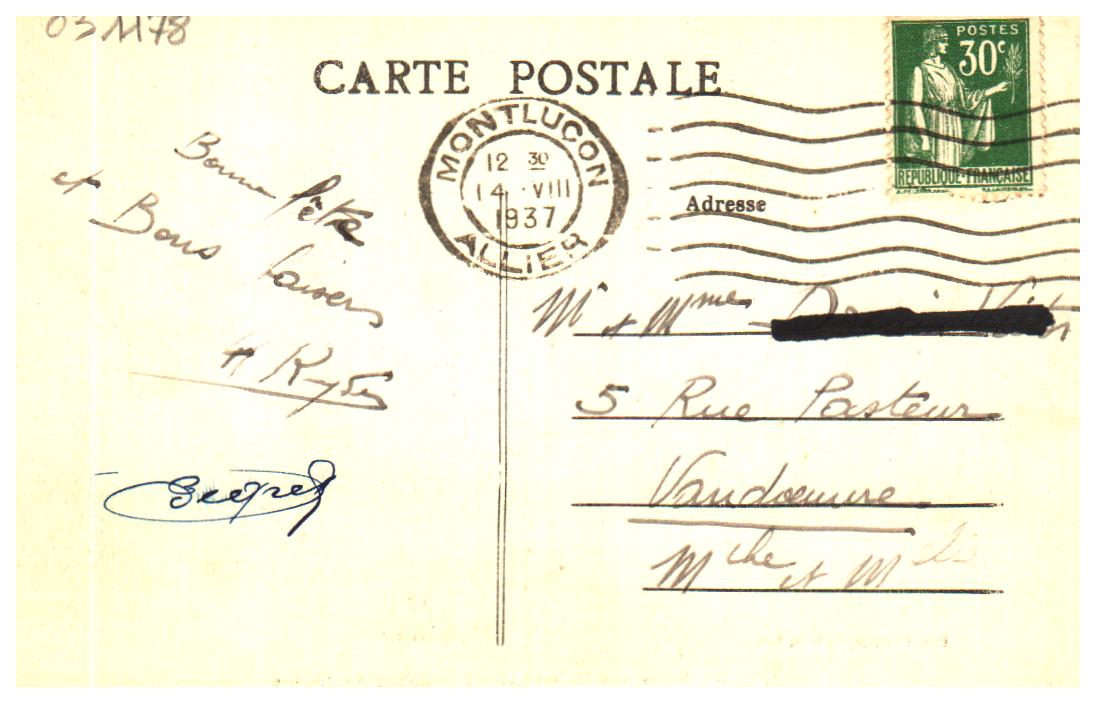 031178
CARTE POSTALE
POSTES
30c
REPUBLIQUE FRANÇAISE
MONTLUCON
12 30
14 VIII
1937
ALLIER
Adresse
Bonne fête
et Bons baisers
Mr et Mmes
5 Rue Pasteur
Vandœuvre
Mthe et Mlle